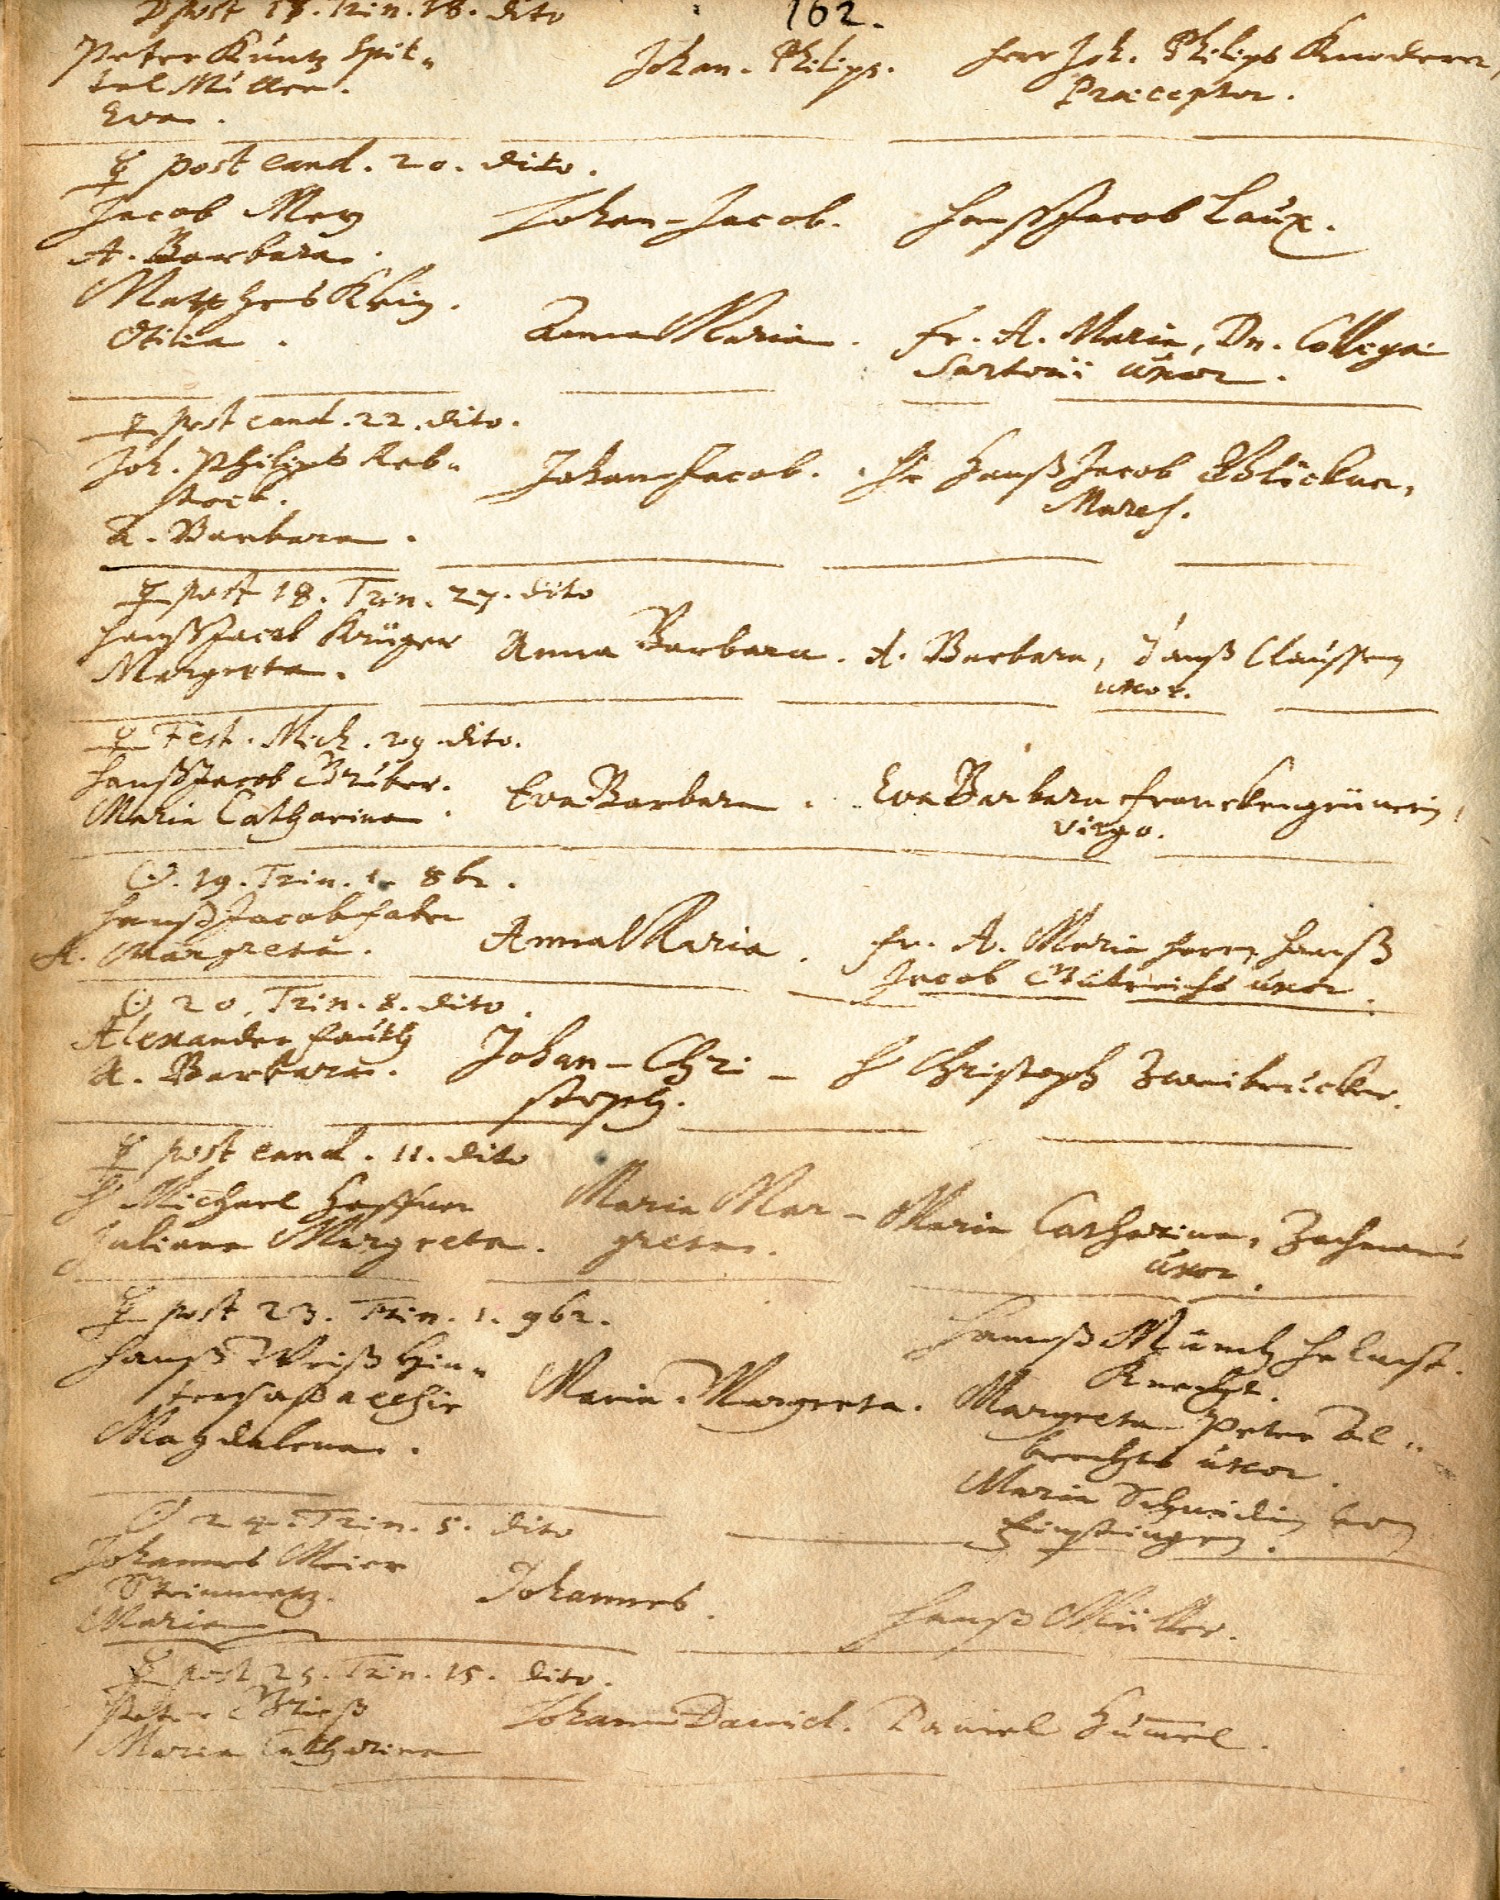 162.
post 17. Trin. 18. dito
Peter Kuntz Spit„
tal Müller.
Eva.
Johan. Philips.
Herr Joh. Philips Knoderer,
Præceptor.
☿ post eand. 20. dito.
Jacob Mey
A. Barbara.
Johan-Jacob.
Hanß Jacob Laux.
Matthes Klein.
Otilia.
Anna Maria.
Fr. A. Maria, Dn. Collegæ
Sartorii uxor.
♀ post eand. 22. dito.
Joh. Philips Reb„
stock.
A. Barbara.
Johan Jacob.
Hr Hanß Jacob Glöckner,
Maresch.
☿ post 18. Trin. 27. dito
Hanß Jacob Krüger
Margreta.
Anna Barbara.
A. Barbara, Hanß Claussen
uxor.
♀ Fest. Mich. 29 dito.
Hanß Jacob Gruber.
Maria Catharina.
Eva Barbara.
Eva Barbara Franckengrünerin,
virgo.
☉. 19. Trin. 1. 8br.
Hanß Jacob Faber
A. Margreta.
Anna Maria.
Fr. A. Maria Herrn Hanß
Jacob uxor.
☉ 20. Trin. 8. dito.
Alexander Fauth
A. Barbara.
Johan-Chri-
stoph.
Hr Christoph Zweibrucker.
☿ post eand. 11. dito
Hr Michael Haffner
Juliana Margreta.
Maria Mar-
greta.
Maria Catharina,
uxor.
☿ post 23. Trin. 1. 9br.
Hanß Weiß Hin„
tersaß
Magdalena.
Maria. Margreta.
Hanß Münch
Knecht.
Margreta Peter Al„
brechts uxor.
Maria Schneiderin von
Finstingen.
☉ 24. Trin. 5. dito
Johannes Meier
Steinmetz.
Maria
Johannes.
Hanß Müller.
☿ post 25. Trin. 15. dito.
Peter Grieß
Maria Catharina
Johann Daniel.
Daniel Hum̄el.